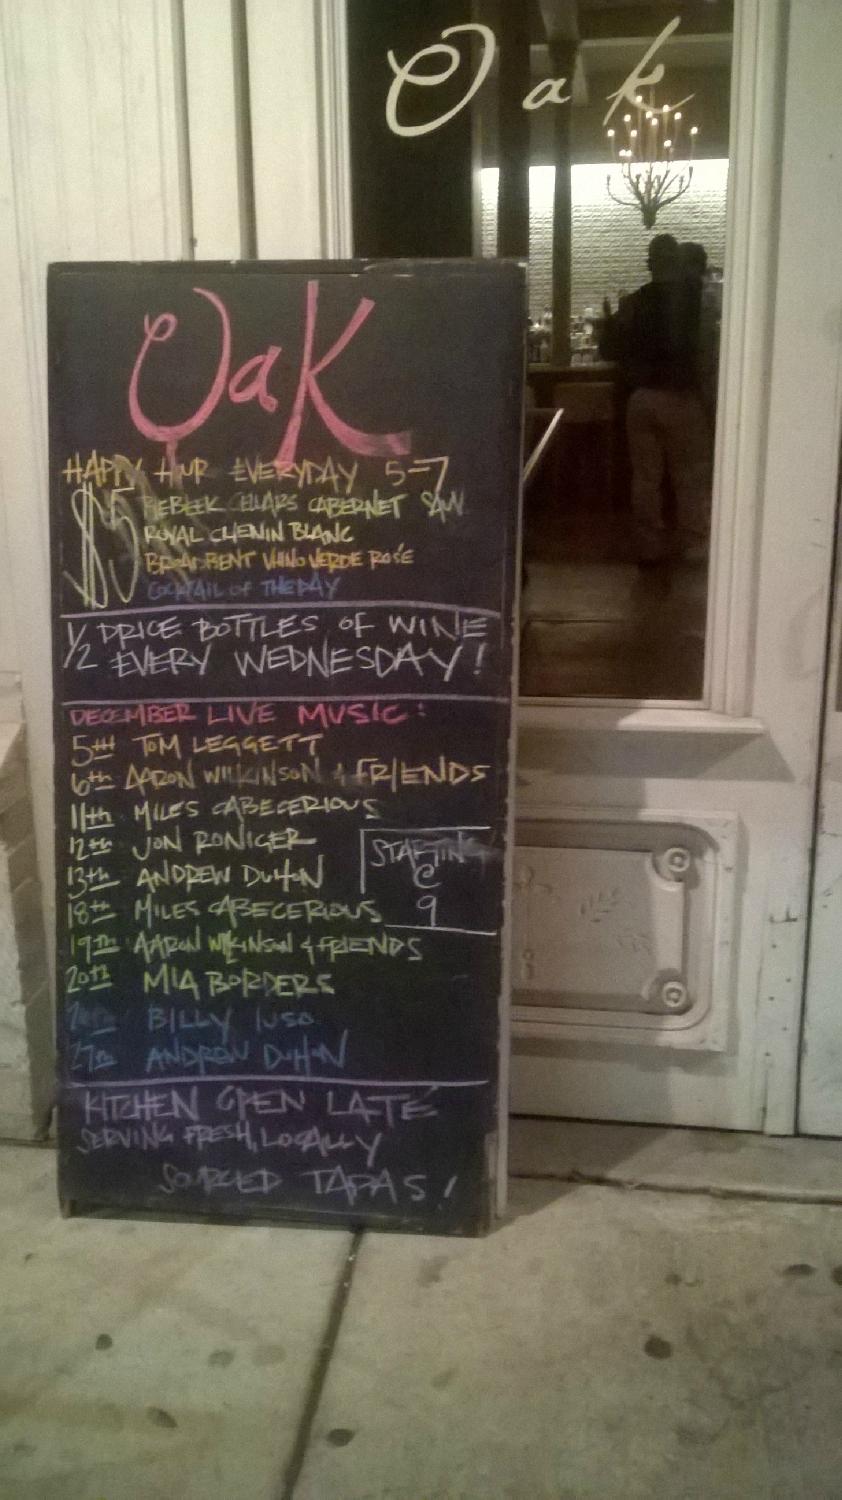 Oak
Oak
HAPPY HOUR EVERYDAY 5-7
$5
RIEBEEK CELLARS CABERNET SAUV
ROYAL CHENIN BLANC
BROADBENT VINO VERDE ROSÉ
COCKTAIL OF THE DAY
1/2 PRICE BOTTLES OF WINE
EVERY WEDNESDAY!
DECEMBER LIVE MUSIC:
5TH TOM LEGGETT
6th AARON WILKINSON & FRIENDS
11th MILES CABECERIOUS
12th JON RONIGER
13th ANDREW DUHON
STARTIN
@
9
18th MILES CABECERIOUS
19Th AARON WILKINSON & FRIENDS
20th MIA BORDERS
BILLY IUSO
27th ANDREW DUHON
KITCHEN OPEN LATE
SERVING FRESH, LOCALLY
SOURCED TAPAS!